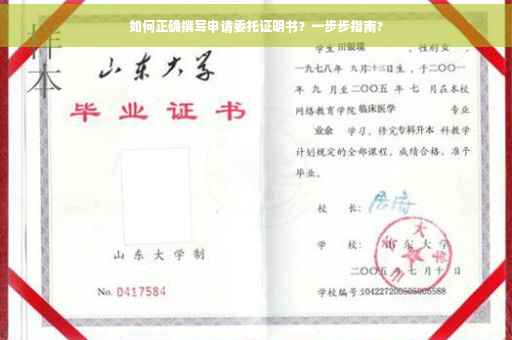 如何正确撰写申请委托证明书？一步步指南？
样本
山东大学
毕业证书
山东大学制
No. 0417584
学生 田银瑞 ，性别女 ，
一九七八年 九月十三日生，于二〇〇一
年 九 月至二〇〇五 年 七 月在本校
网络教育学院 临床医学 专业
业余 学习，修完专科升本 科教学
计划规定的全部课程，成绩合格，准予
毕业。
校 长：
学 校：山东大学
二〇〇五 年 七 月 十 日
学校编号:104227200505005588